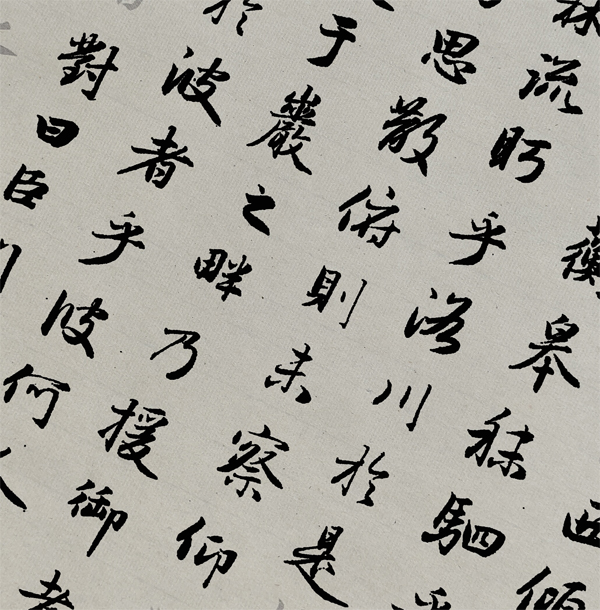 西傾
蘅皋秣駟乎
林流眄乎洛川於是
思散俯則未察仰
于巖之畔乃援御者
於彼者乎彼何人
對曰臣